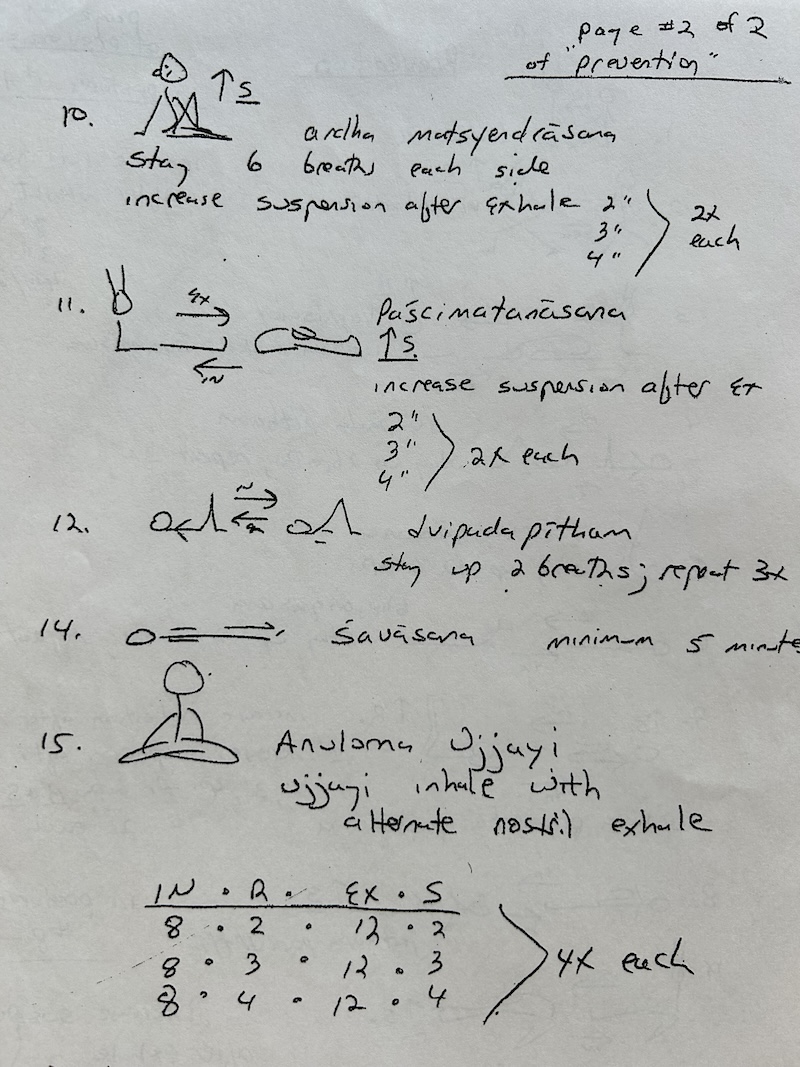 page #2 of 2
of "prevention"
↑ S
10.
ardha matsyendrāsana
stay 6 breaths each side
increase suspension after exhale 2"
3"
4"
2x
each
11.
Ex
IN
Paścimatanāsana
↑ S.
increase suspension after Ex
2"
3"
4"
2x each
12.
IN
Ex
dvipada pītham
stay up 2 breaths; repeat 3x
14.
Śavāsana minimum 5 minute
15.
Anuloma Ujjayi
Ujjayi inhale with
alternate nostril exhale
IN · R · Ex · S
8 · 2 · 12 · 2
8 · 3 · 12 · 3
8 · 4 · 12 · 4
4x each